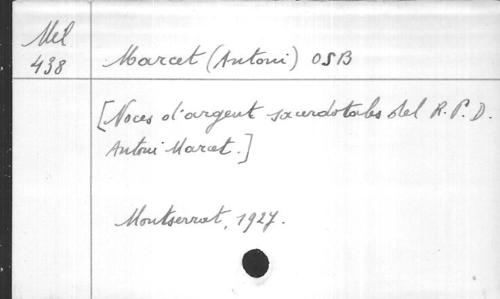 Mel
438
Marcet (Antoni) OSB
[Noces d'argent sacerdotales del R.P.D.
Antoni Marcet.]
Montserrat, 1927.